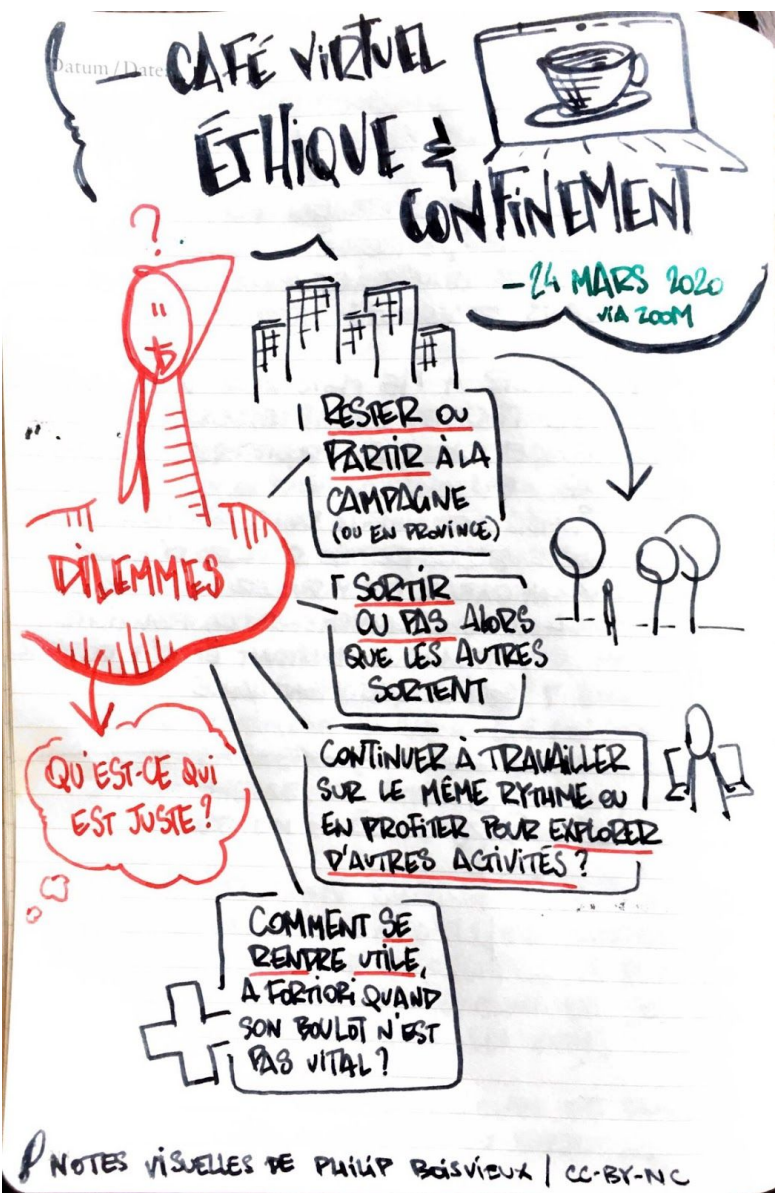 Datum / Date:
— CAFÉ VIRTUEL
ÉTHIQUE &
CONFINEMENT
— 24 MARS 2020
VIA ZOOM
?
DILEMMES
RESTER OU
PARTIR À LA
CAMPAGNE
(OU EN PROVINCE)
SORTIR
OU PAS ALORS
QUE LES AUTRES
SORTENT
QU'EST-CE QUI
EST JUSTE ?
CONTINUER À TRAVAILLER
SUR LE MÊME RYTHME OU
EN PROFITER POUR EXPLORER
D'AUTRES ACTIVITÉS ?
COMMENT SE
RENDRE UTILE,
A FORTIORI QUAND
SON BOULOT N'EST
PAS VITAL ?
NOTES VISUELLES DE PHILIP BOISVIEUX | CC-BY-NC